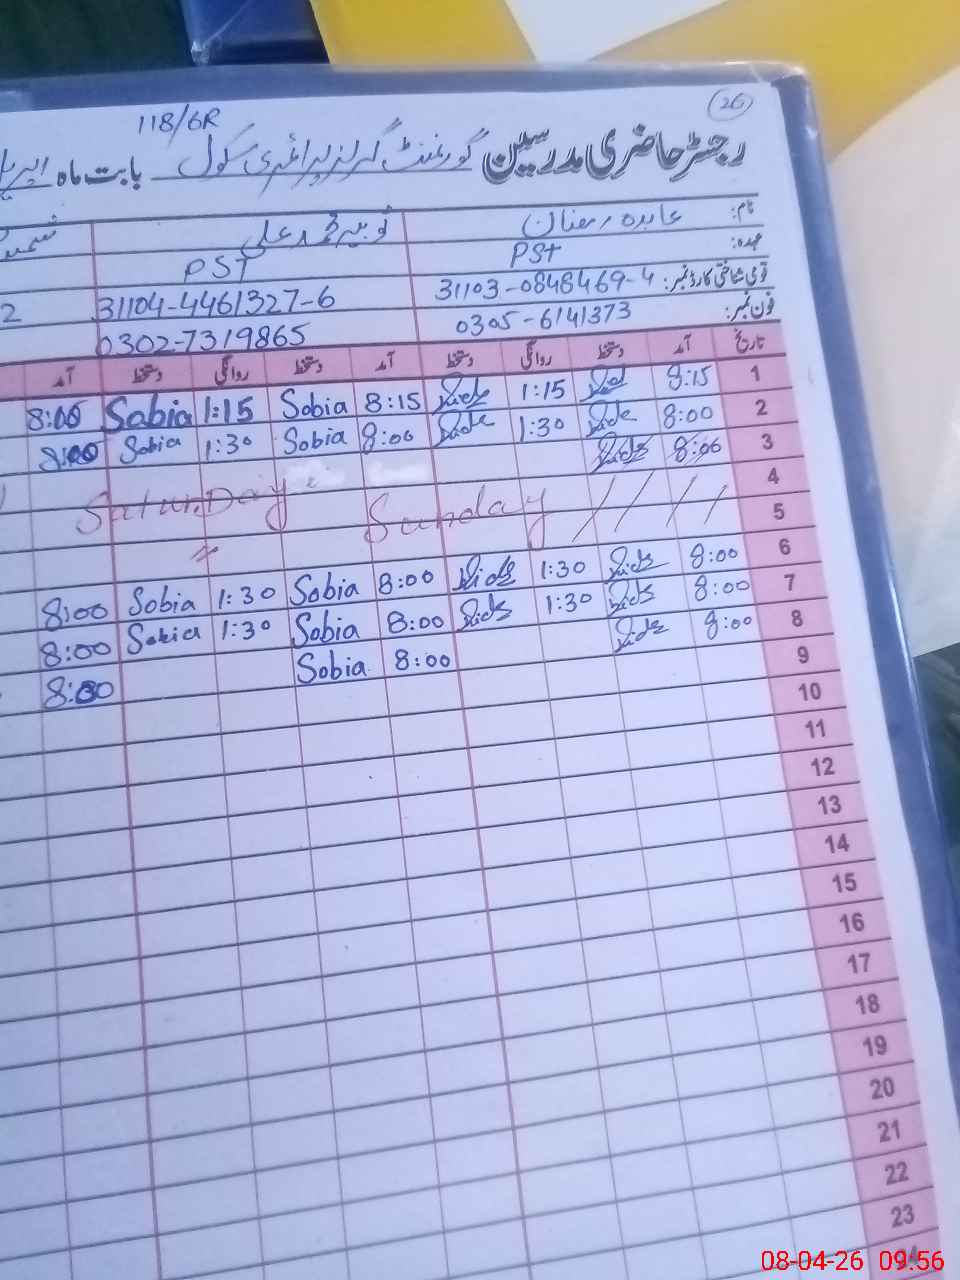 118/6R
26
رجسٹر حاضری مدرسین گورنمنٹ گرلز پرائمری سکول بابت ماہ اپریل
نام: عابدہ رمضان
عہدہ: PST PST
قومی شناختی کارڈ نمبر: 31103-0848469-4 31104-4461327-6 2
فون نمبر: 0305-6141373 0302-7319865
تاریخ آمد دستخط روانگی دستخط آمد دستخط روانگی دستخط آمد
1 8:15 1:15 8:15 Sobia 1:15 Sobia 8:00
2 8:00 1:30 8:00 Sobia 1:30 Sobia 8:00
3 8:00
4 Saturday
5 Sunday
6 8:00 1:30 8:00 Sobia 1:30 Sobia 8:00
7 8:00 1:30 8:00 Sobia 1:30 Sobia 8:00
8 8:00 8:00 Sobia 8:00
9
10
11
12
13
14
15
16
17
18
19
20
21
22
23
24
08-04-26 09:56